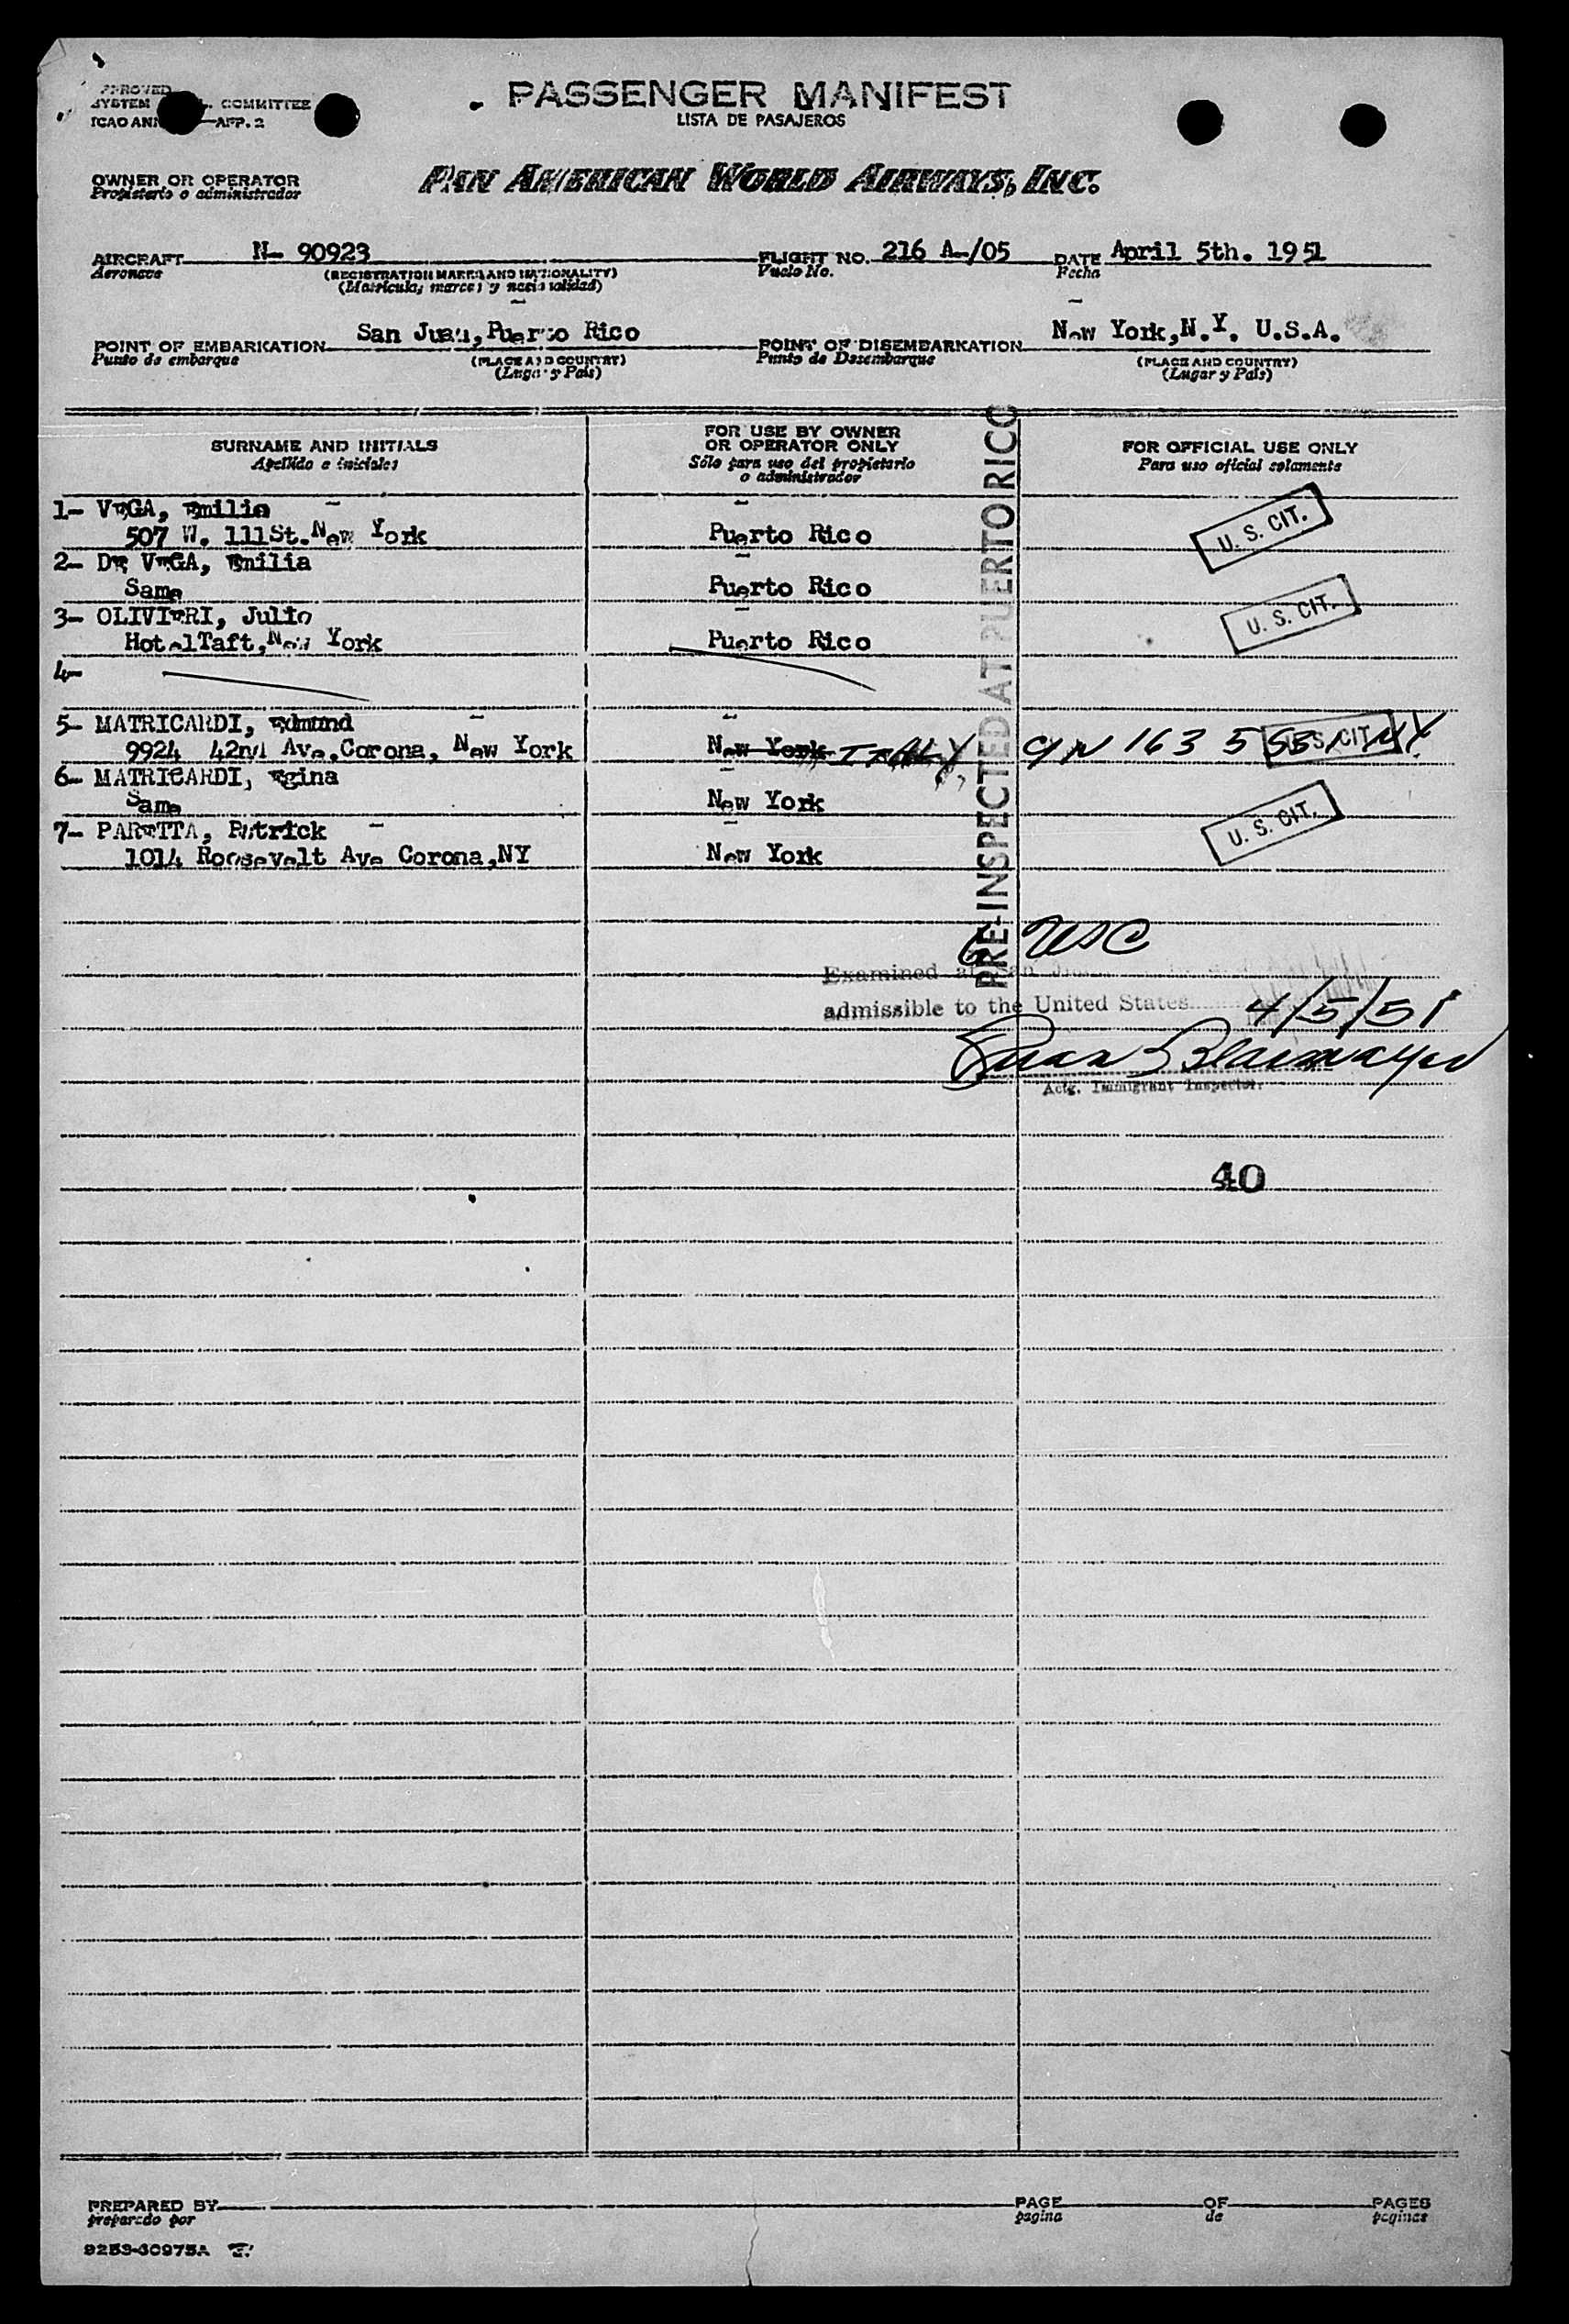 APPROVED
SYSTEM COMMITTEE
ICAO APP. 2
PASSENGER MANIFEST
LISTA DE PASAJEROS
OWNER OR OPERATOR
Propietario o administrador
PAN AMERICAN WORLD AIRWAYS, INC.
AIRCRAFT N- 90923 FLIGHT NO. 216 A-/05 DATE April 5th. 1951
Aeronave (REGISTRATION MARKS AND NATIONALITY) Vuelo No. Fecha
(Matricula, marcas y nacionalidad)
POINT OF EMBARKATION San Juan, Puerto Rico POINT OF DISEMBARKATION New York, N.Y. U.S.A.
Punto de embarque (PLACE AND COUNTRY) Punto de Desembarque (PLACE AND COUNTRY)
(Lugar y País) (Lugar y País)
SURNAME AND INITIALS FOR USE BY OWNER OR OPERATOR ONLY FOR OFFICIAL USE ONLY
Apellido e iniciales Sólo para uso del propietario o administrador Para uso oficial solamente
1- VEGA, Emilio
507 W. 111St. New York Puerto Rico U. S. CIT.
2- DE VEGA, Emilia
Same Puerto Rico
3- OLIVIERI, Julio U. S. CIT.
Hotel Taft, New York Puerto Rico
4-
5- MATRICARDI, Edmund
9924 42nd Ave. Corona, New York New York ITALY U. S. CIT.
6- MATRICARDI, Egina
Same New York
7- PARETTA, Patrick U. S. CIT.
1014 Roosevelt Ave Corona, NY New York
PRE-INSPECTED AT PUERTO RICO
6 USC
Examined at San
admissible to the United States 4/5/51
Actg. Immigrant Inspector.
40
PREPARED BY PAGE OF PAGES
preparado por pagina de paginas
9253-30975A